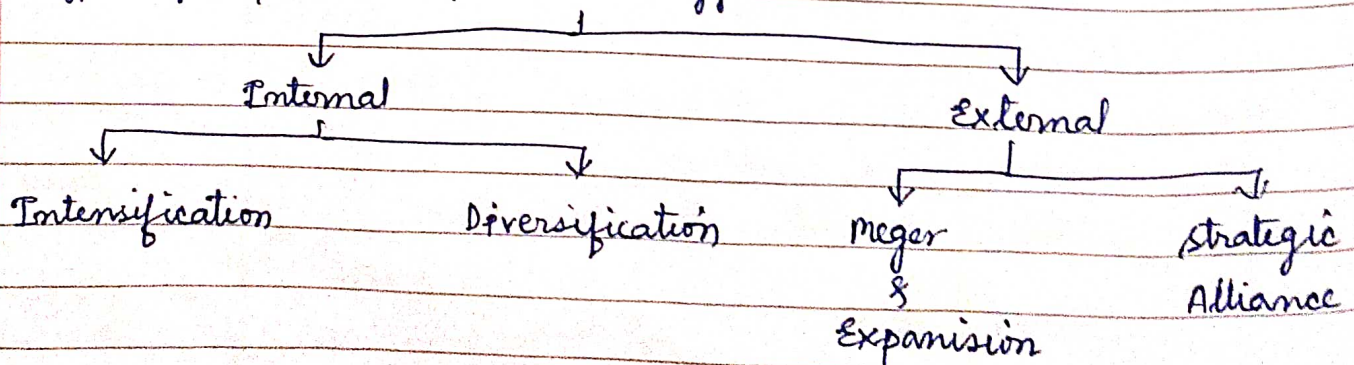 Internal
External
Intensification
Diversification
Meger
&
Expanision
Strategic
Alliance